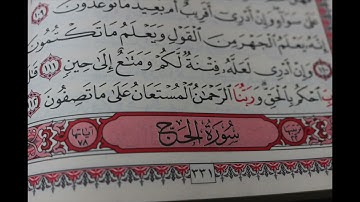 عَلَىٰ سَوَآءٍ وَإِنْ أَدْرِىٓ أَقَرِيبٌ أَم بَعِيدٌ مَّا تُوعَدُونَ ١٠٩
إِنَّهُۥ يَعْلَمُ ٱلْجَهْرَ مِنَ ٱلْقَوْلِ وَيَعْلَمُ مَا تَكْتُمُونَ
وَإِنْ أَدْرِى لَعَلَّهُۥ فِتْنَةٌ لَّكُمْ وَمَتَٰعٌ إِلَىٰ حِينٍ ١١١ قَٰلَ
ٱحْكُم بِٱلْحَقِّ وَرَبُّنَا ٱلرَّحْمَٰنُ ٱلْمُسْتَعَانُ عَلَىٰ مَا تَصِفُونَ ١١٢
سُورَةُ الحَجّ
آياتها ٧٨
٣٣١